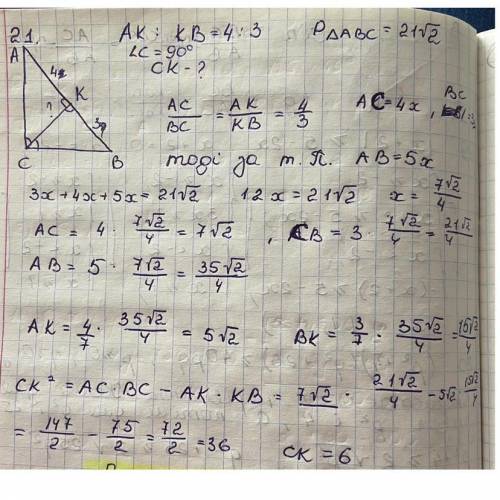 21. AK : KB = 4 : 3 P△ABC = 21√2
∠C = 90°
CK - ?
A
4x
K
?
3x
C B
AC/BC = AK/KB = 4/3 AC = 4x, BC
тоді за т. П. AB = 5x
3x + 4x + 5x = 21√2 12x = 21√2 x = 7√2/4
AC = 4 · 7√2/4 = 7√2, CB = 3 · 7√2/4 = 21√2/4
AB = 5 · 7√2/4 = 35√2/4
AK = 4/7 · 35√2/4 = 5√2 BK = 3/7 · 35√2/4 = 15√2/4
CK² = AC · BC - AK · KB = 7√2 · 21√2/4 - 5√2 · 15√2/4
= 147/2 - 75/2 = 72/2 = 36 CK = 6